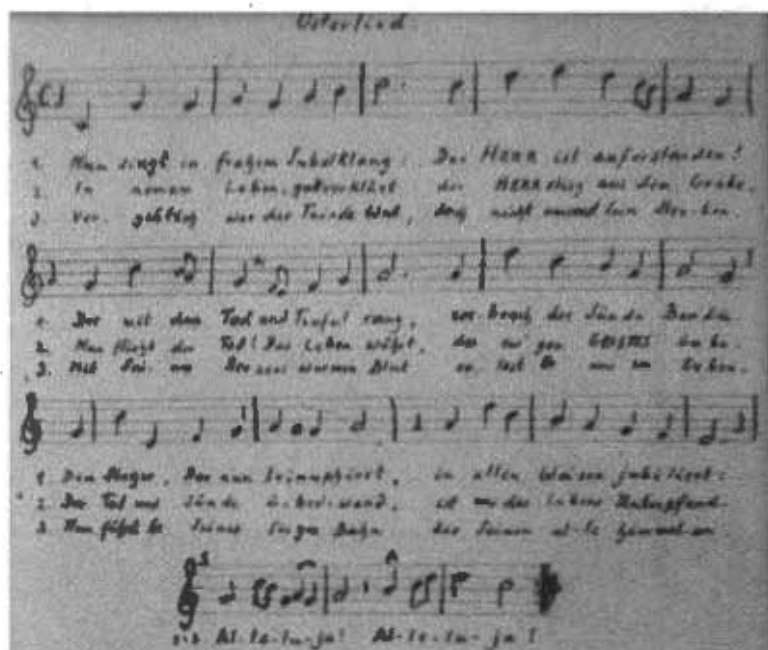 Osterlied.
1. Nun singt in frohem Jubelklang: Der HERR ist auferstanden!
2. In neuem Leben, gottverklärt der HERR stieg aus dem Grabe.
3. Ver- geblich war der Feinde Wut, doch nicht umsonst Sein Ster-ben.
1. Der mit dem Tod und Teufel rang, zer-brach der Sünde Banden.
2. Nun flieht der Tod! Das Leben währt, des ew'gen GEISTES Gabe.
3. Mit Sei- nes Herzens warmem Blut
1. Dem Sieger, Der nun triumphiert, in allen Weisen jubiliert:
2. Der Tod und Sünde ü-ber-wand, ist des Lebens Unterpfand.
3. Nun führt Er Seiner Sieges Bahn der Seinen al-le himmelan.
1-3 Al-le-lu-ja! Al-le-lu-ja!